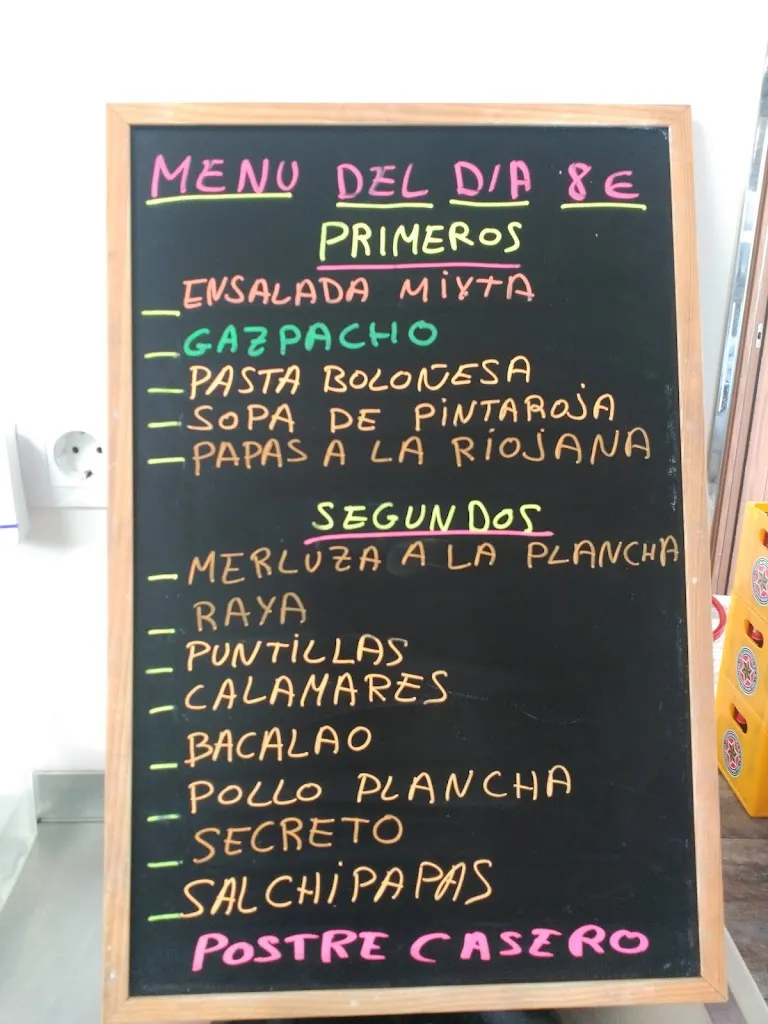 MENU DEL DIA 8€
PRIMEROS
ENSALADA MIXTA
GAZPACHO
PASTA BOLOÑESA
SOPA DE PINTAROJA
PAPAS A LA RIOJANA
SEGUNDOS
MERLUZA A LA PLANCHA
RAYA
PUNTILLAS
CALAMARES
BACALAO
POLLO PLANCHA
SECRETO
SALCHIPAPAS
POSTRE CASERO